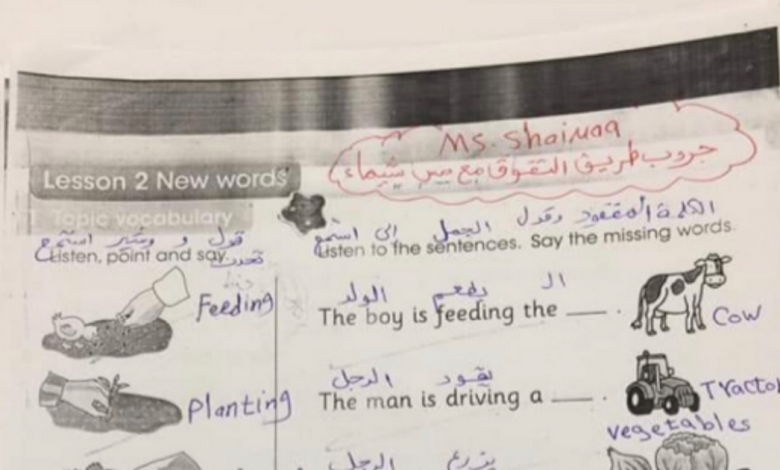 Ms. Shaimaa
جروب طريق التفوق مع مس شيماء
Lesson 2 New words
1 Topic vocabulary
قول و وشير استمع
Listen, point and say.
الكلمة المفقود وقول الجمل الى استمع
Listen to the sentences. Say the missing words.
Feeding
الولد يطعم الـ
The boy is feeding the ___.
Cow
Planting
الرجل يقود
The man is driving a ___.
Tractor
vegetables
الرجل يزرع